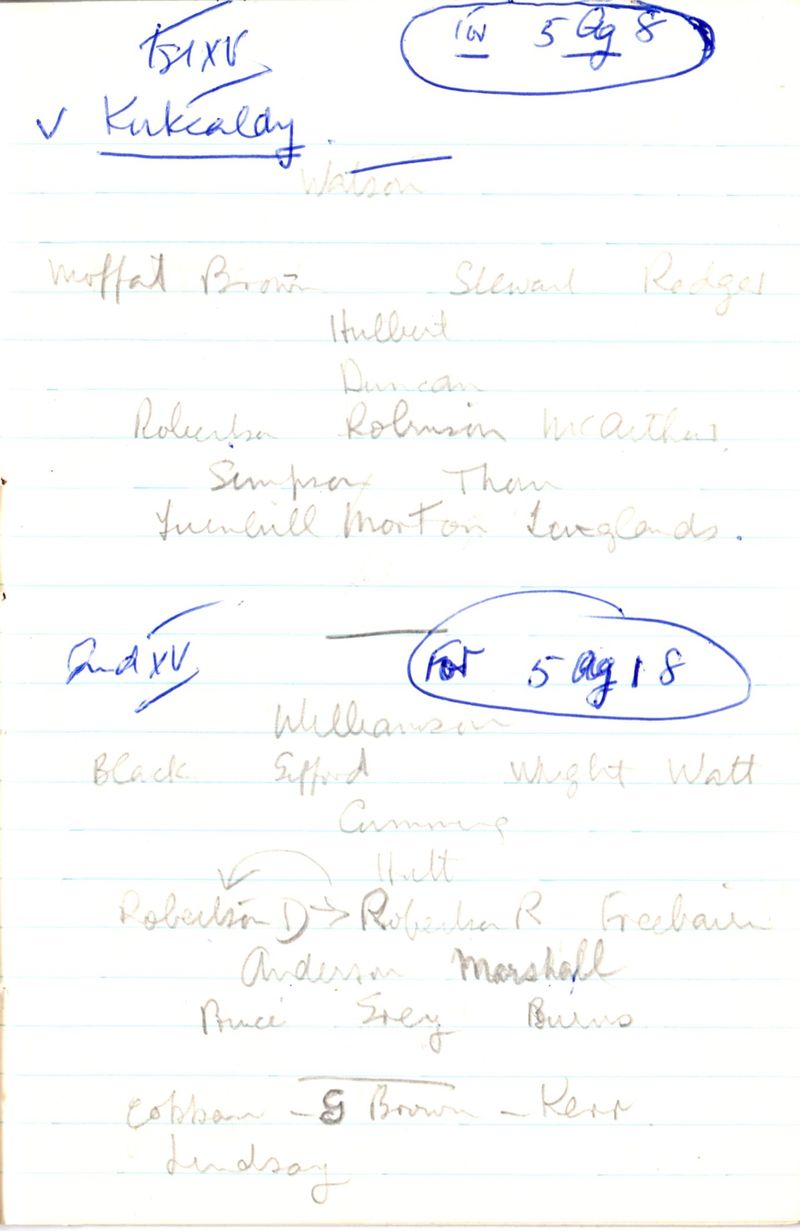 1st XV For 5 Ag 8
✓ Kirkcaldy
Watson
Moffat Brown Stewart Rodger
Hulbert
Duncan
Robertson Robinson McArthur
Simpson Thom
Turnbull Morton Langlands.
2nd XV For 5 Ag 18
Williamson
Black Gifford Wright Watt
Cumming
Hutt
Robertson D → Robertson R Freebairn
Anderson Marshall
Bruce Grey Burns
Cobban - G Brown - Kerr
Lindsay